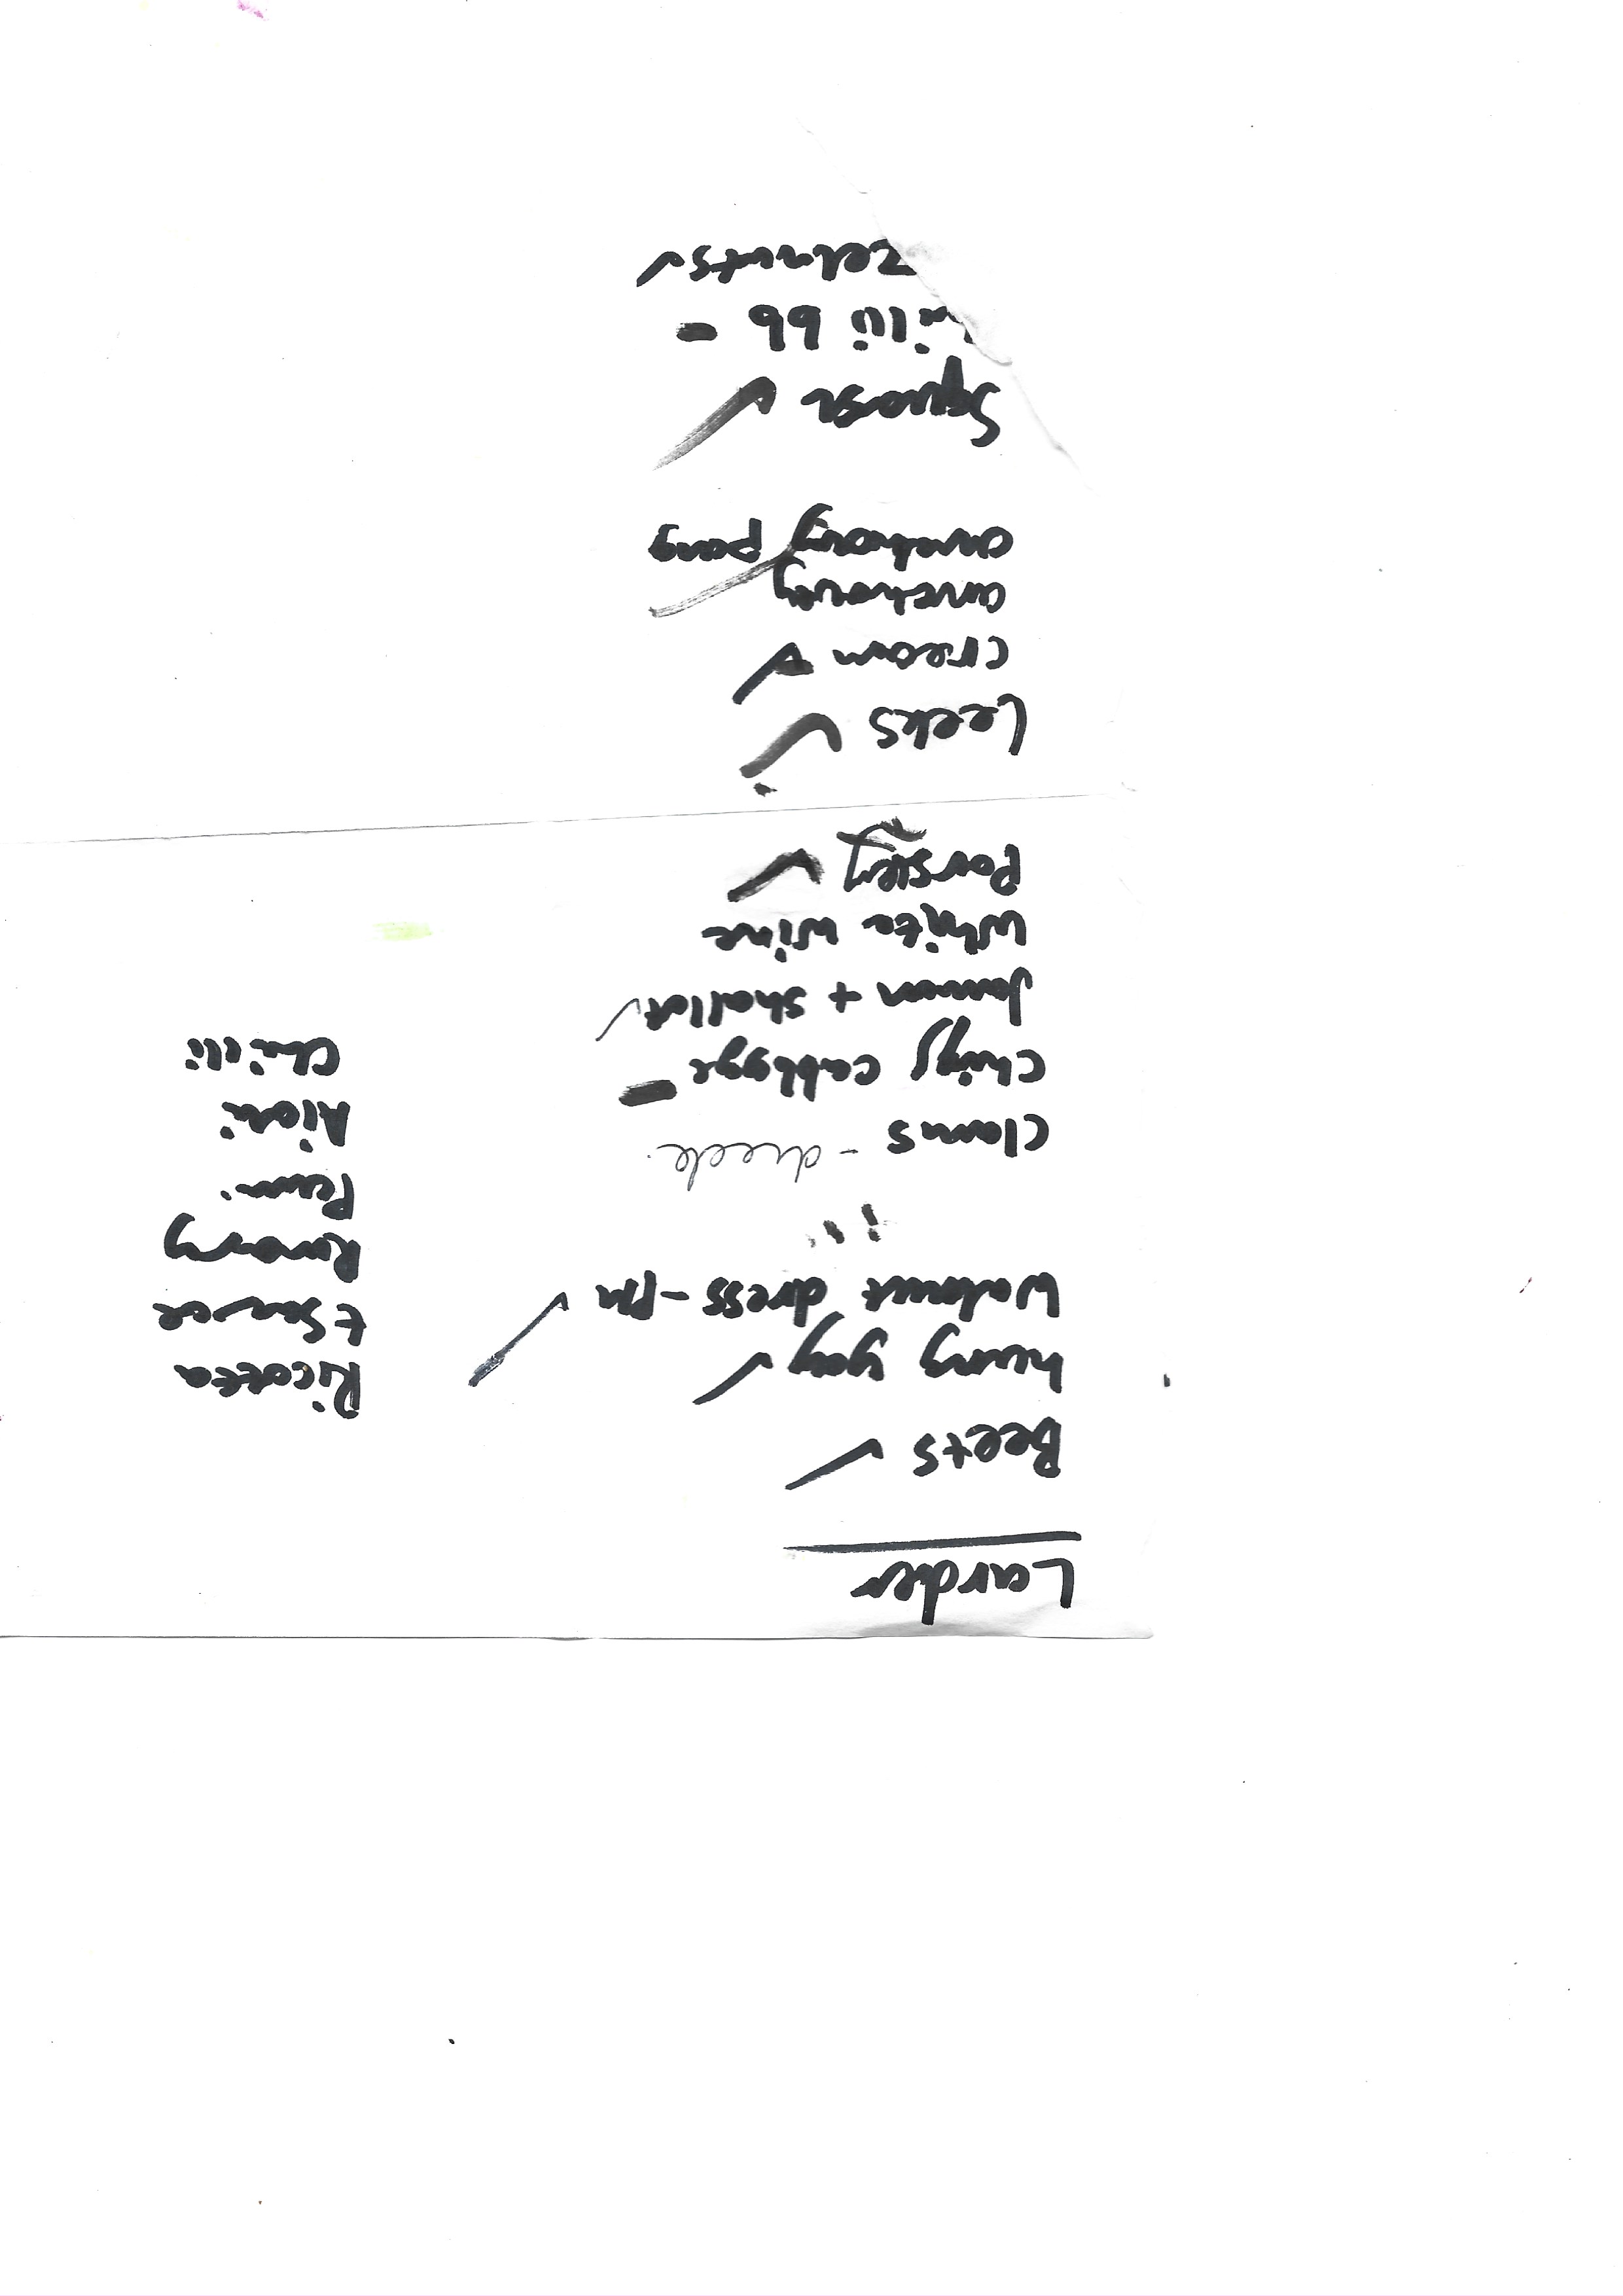 Larder
Beets ✓
hung yog ✓
Walnut dress - pn ✓
Clams - check.
Chiff cabbage -
Jamon + shallot ✓
white wine
Parsley ✓
Leeks ✓
cream ✓
anchovy ✓
anchovy pang
Squash ✓
illi bb -
zelnuts ✓
Ricotta
t sauce
Rosemary
Pem.
Aioli
Chilli